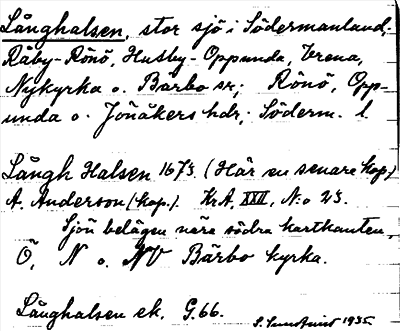 Långhalsen, stor sjö i Södermanland;
Råby-Rönö, Husby-Oppunda, Vrena,
Nykyrka o. Bärbo sr; Rönö, Opp-
unda o. Jönåkers hdr; Söderm. l.
Långh Halsen 1673. (Här en senare kop.)
A. Anderson (kop.). KrA, XXII, N:o 23.
Sjön belägen nära södra kartkanten,
Ö, N o. NV Bärbo kyrka.
Långhalsen ek. G.66.
S. Sundqvist 1935